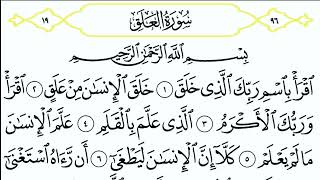 ٩٦ سُورَةُ الْعَلَقِ ١٩
بِسْمِ اللَّهِ الرَّحْمَٰنِ الرَّحِيمِ
ٱقۡرَأۡ بِٱسۡمِ رَبِّكَ ٱلَّذِى خَلَقَ ١ خَلَقَ ٱلۡإِنسَٰنَ مِنۡ عَلَقٍ ٢ ٱقۡرَأۡ
وَرَبُّكَ ٱلۡأَكۡرَمُ ٣ ٱلَّذِى عَلَّمَ بِٱلۡقَلَمِ ٤ عَلَّمَ ٱلۡإِنسَٰنَ
مَا لَمۡ يَعۡلَمۡ ٥ كَلَّآ إِنَّ ٱلۡإِنسَٰنَ لَيَطۡغَىٰٓ ٦ أَن رَّءَاهُ ٱسۡتَغۡنَىٰٓ